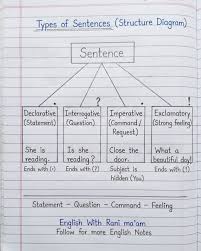 Types of Sentences (Structure Diagram)
Sentence
. ? . !
Declarative
(Statement)
Interrogative
(Question)
Imperative
(Command /
Request)
Exclamatory
(Strong feeling)
She is
reading.
Ends with (.)
Is she
reading?
Ends with (?)
Close the
door.
Subject is
hidden (You)
What a
beautiful day!
Ends with (!)
Statement - Question - Command - Feeling
English With Rani ma'am
Follow for more English Notes